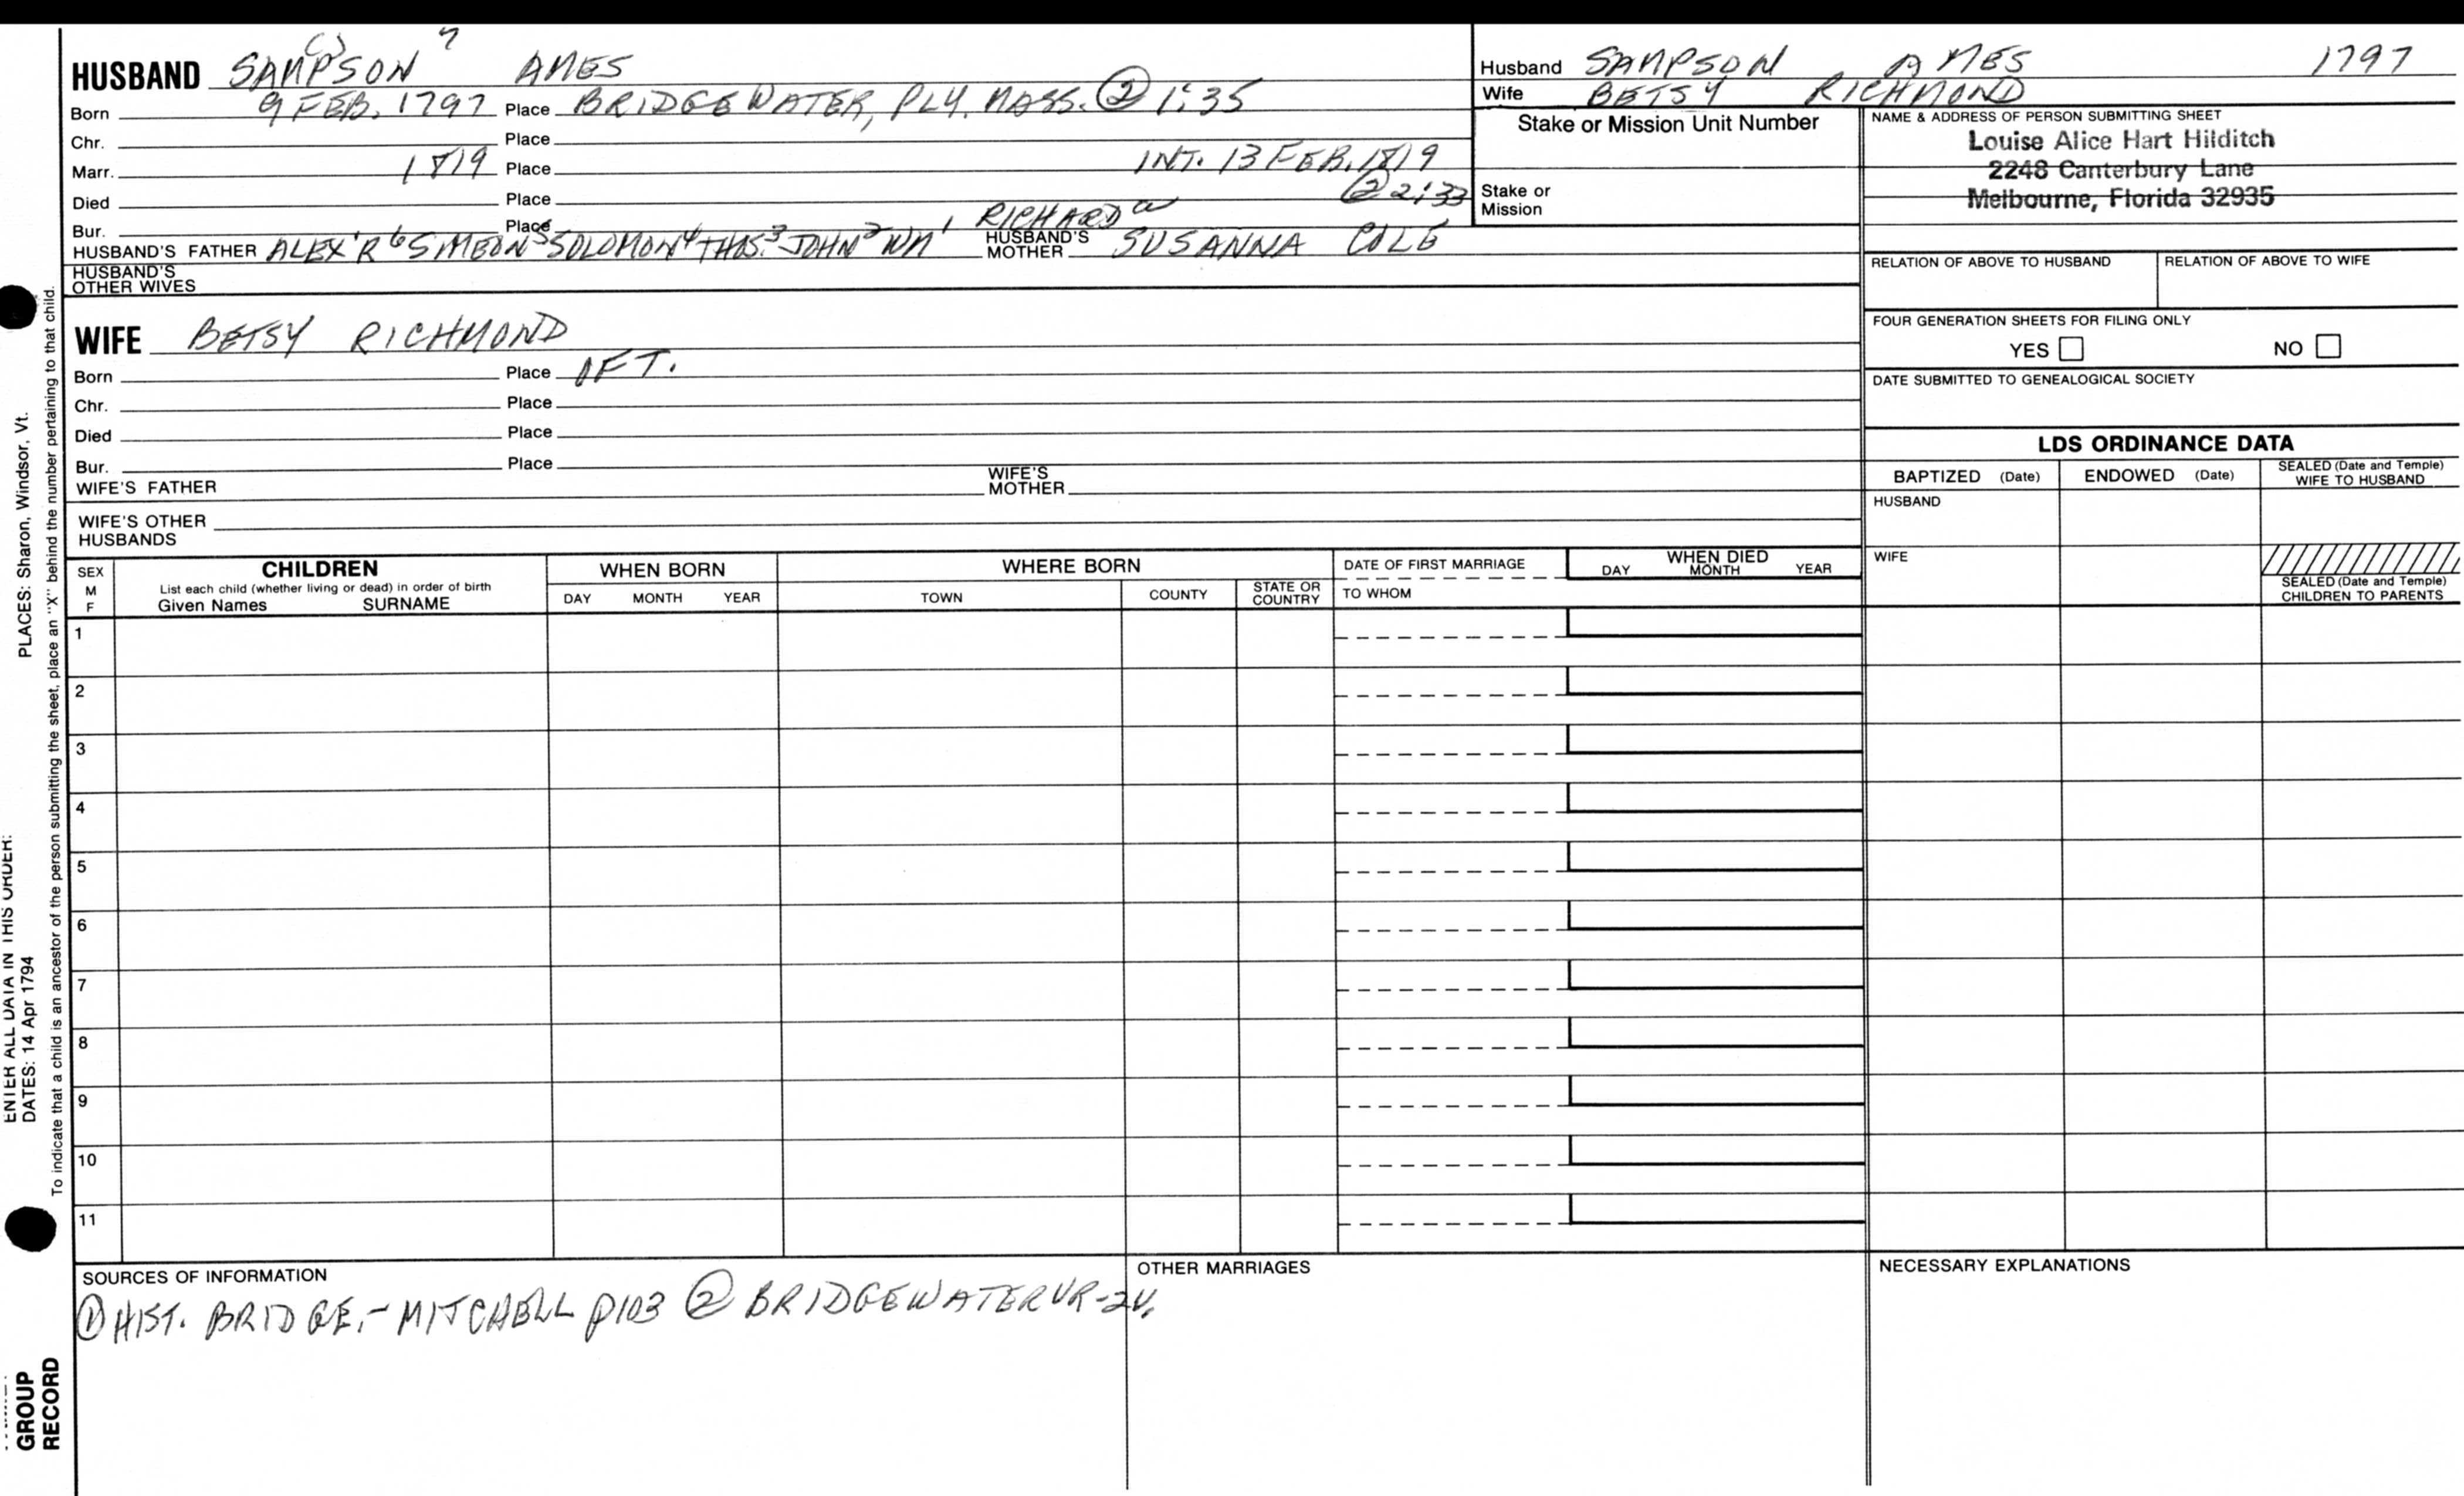 HUSBAND SAMPSON 7 AMES
Born 9 FEB. 1797 Place BRIDGEWATER, PLY. MASS. ② 1:35
Chr. Place
Marr. 1819 Place INT. 13 FEB. 1819
② 2:33
Died Place
Bur. Place
RICHARD
HUSBAND'S FATHER ALEX'R 6 SIMEON 5 SOLOMON 4 THOS. 3 JOHN 2 WM 1 HUSBAND'S MOTHER SUSANNA COLE
HUSBAND'S OTHER WIVES
Husband SAMPSON AMES 1797
Wife BETSY RICHMOND
Stake or Mission Unit Number
Stake or Mission
NAME & ADDRESS OF PERSON SUBMITTING SHEET
Louise Alice Hart Hilditch
2248 Canterbury Lane
Melbourne, Florida 32935
RELATION OF ABOVE TO HUSBAND RELATION OF ABOVE TO WIFE
FOUR GENERATION SHEETS FOR FILING ONLY
YES NO
DATE SUBMITTED TO GENEALOGICAL SOCIETY
WIFE BETSY RICHMOND
Born Place OF T.
Chr. Place
Died Place
Bur. Place
WIFE'S FATHER WIFE'S MOTHER
WIFE'S OTHER HUSBANDS
LDS ORDINANCE DATA
BAPTIZED (Date) ENDOWED (Date) SEALED (Date and Temple) WIFE TO HUSBAND
HUSBAND
WIFE
SEALED (Date and Temple) CHILDREN TO PARENTS
SEX M F
CHILDREN
List each child (whether living or dead) in order of birth
Given Names SURNAME
WHEN BORN
DAY MONTH YEAR
WHERE BORN
TOWN COUNTY STATE OR COUNTRY
DATE OF FIRST MARRIAGE
TO WHOM
WHEN DIED
DAY MONTH YEAR
1
2
3
4
5
6
7
8
9
10
11
SOURCES OF INFORMATION
① HIST. BRIDGE.- MITCHELL p103 ② BRIDGEWATER VR-2V.
OTHER MARRIAGES
NECESSARY EXPLANATIONS
ENTER ALL DATA IN THIS ORDER:
DATES: 14 Apr 1794 PLACES: Sharon, Windsor, Vt.
To indicate that a child is an ancestor of the person submitting the sheet, place an "X" behind the number pertaining to that child.
GROUP
RECORD